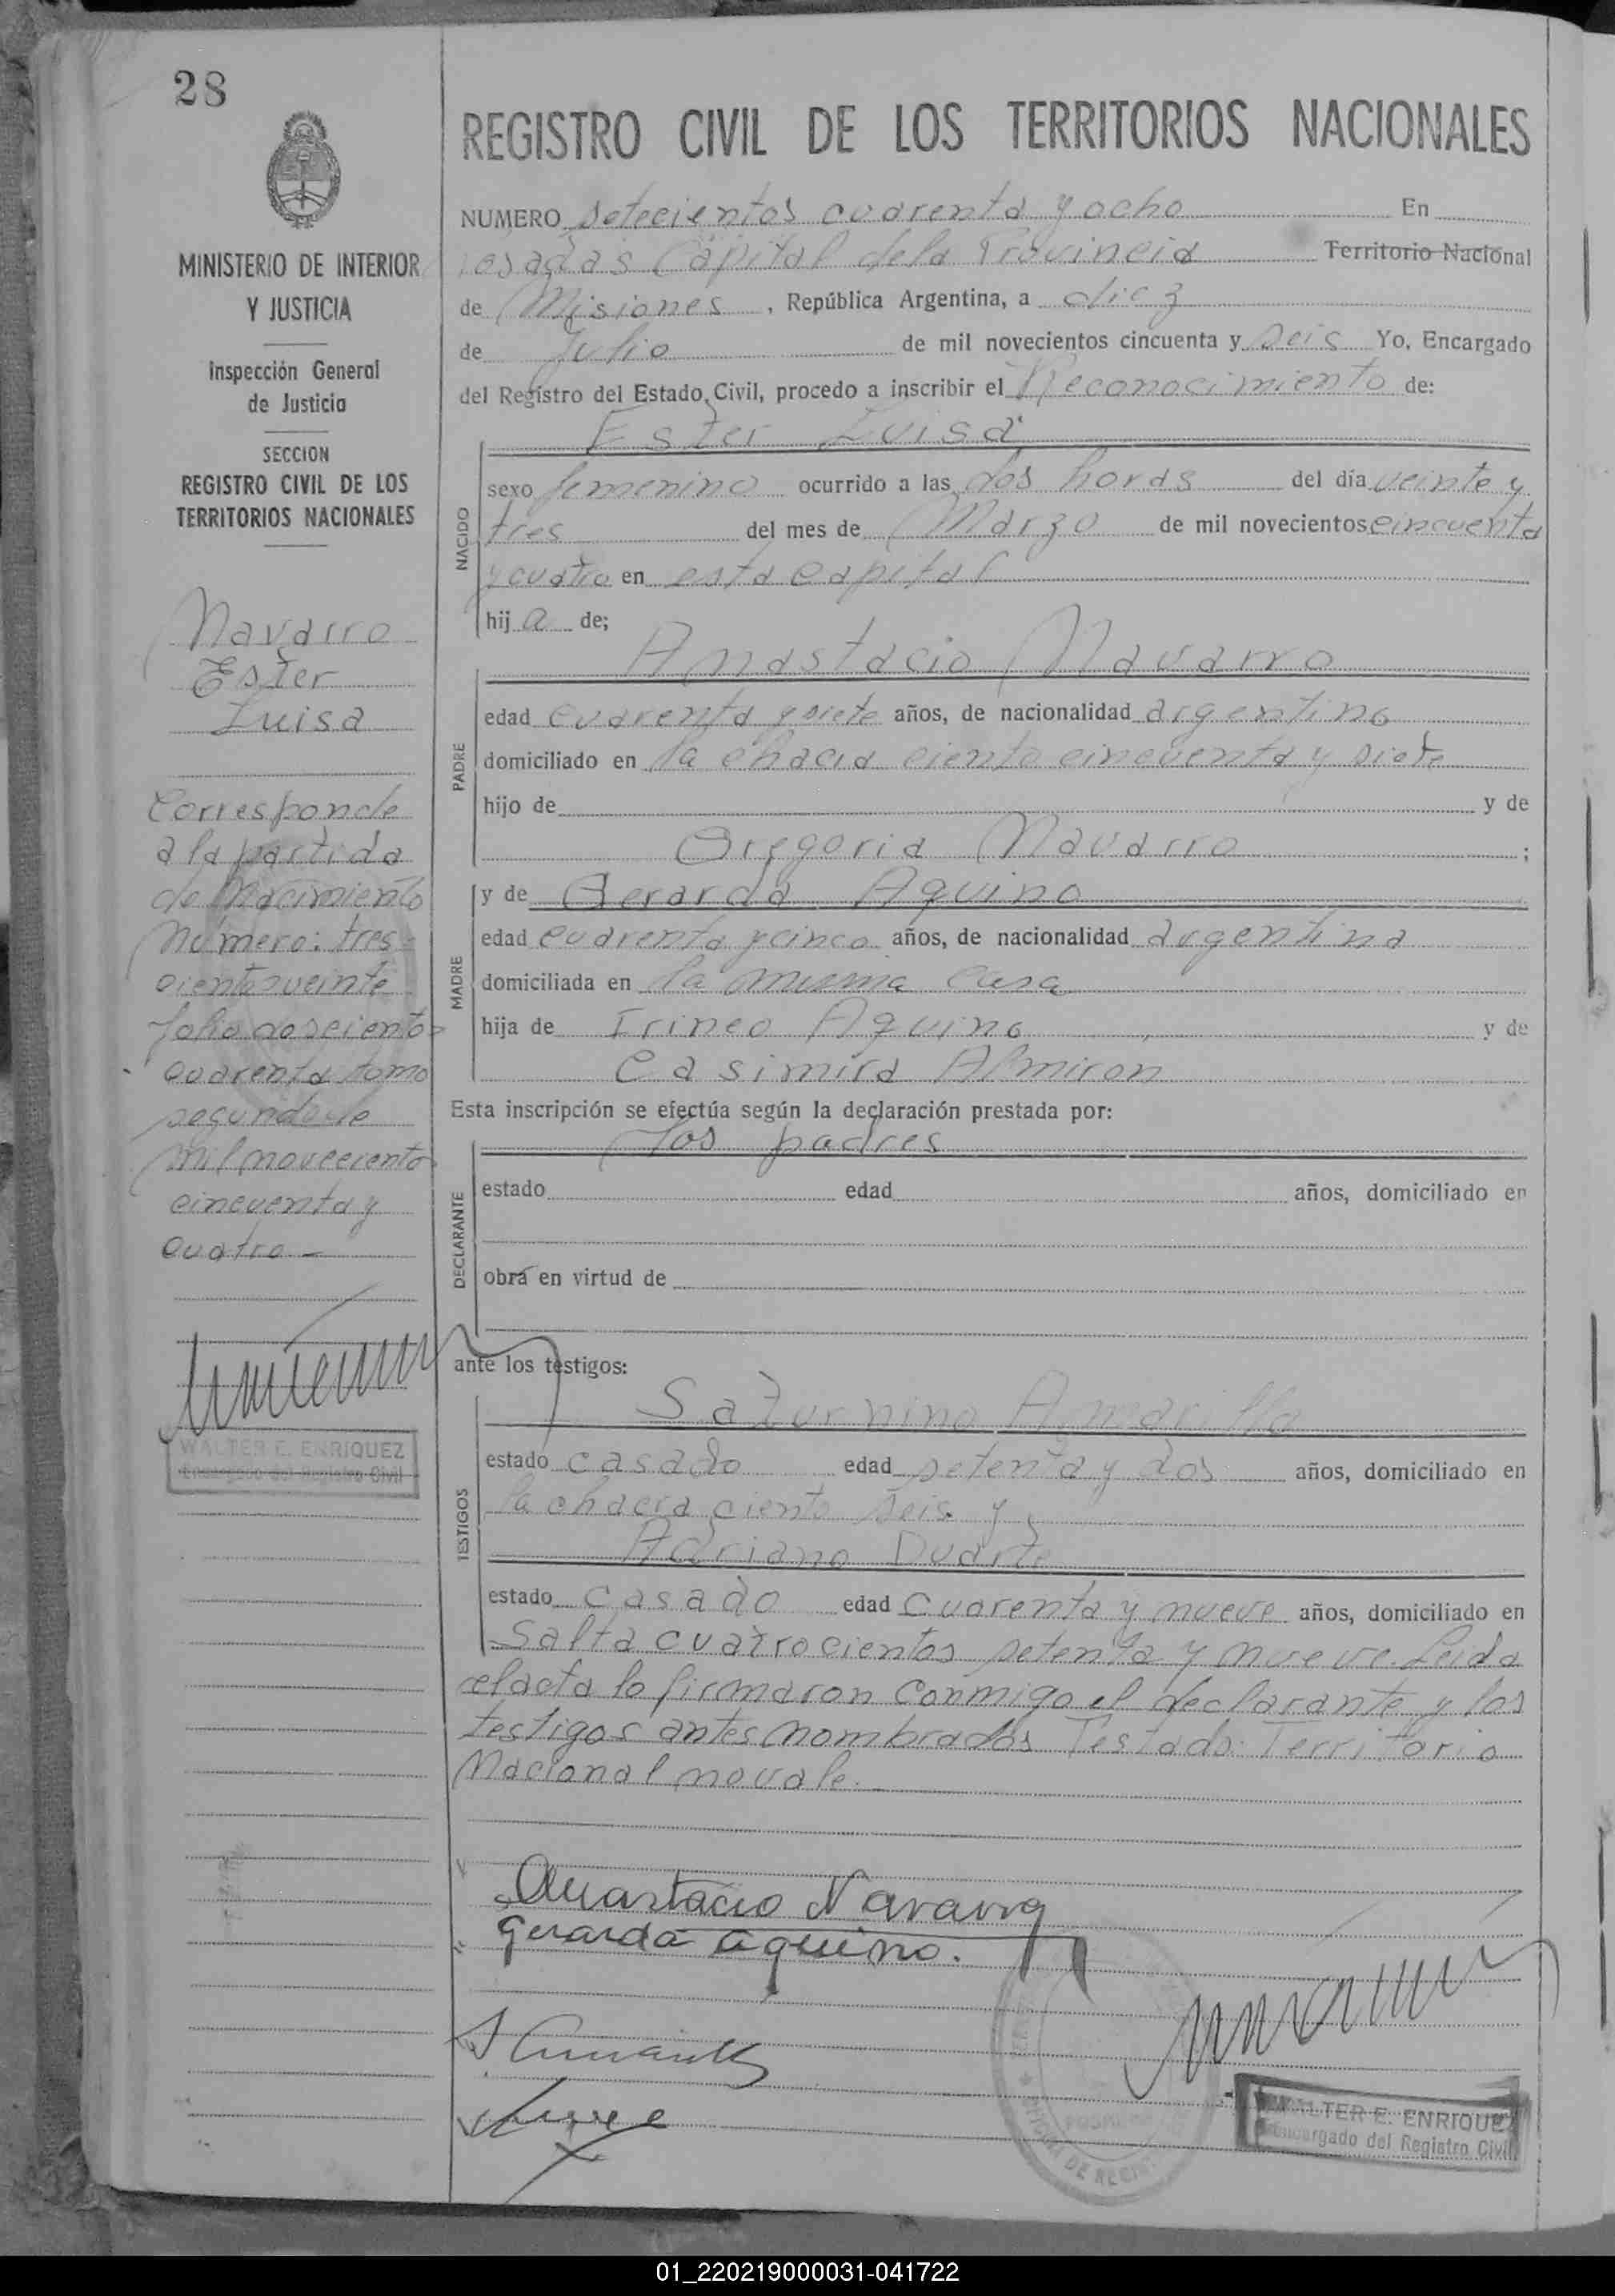 28
MINISTERIO DE INTERIOR
Y JUSTICIA
Inspección General
de Justicia
SECCION
REGISTRO CIVIL DE LOS
TERRITORIOS NACIONALES
Navarro
Ester
Luisa
Corresponde
a la partida
de Nacimiento
Número: tres
cientos veinte
folio doscientos
cuarenta tomo
segundo de
mil novecientos
cincuenta y
cuatro -
WALTER E. ENRIQUEZ
Encargado del Registro Civil
REGISTRO CIVIL DE LOS TERRITORIOS NACIONALES
NUMERO setecientos cuarenta y ocho En
Posadas Capital de la Provincia Territorio Nacional
de Misiones, República Argentina, a diez
de Julio de mil novecientos cincuenta y seis Yo, Encargado
del Registro del Estado Civil, procedo a inscribir el Reconocimiento de:
Ester Luisa
NACIDO
sexo femenino ocurrido a las dos horas del día veinte y
tres del mes de Marzo de mil novecientos cincuenta
y cuatro en esta capital
hija de;
Anastacio Navarro
PADRE
edad cuarenta y siete años, de nacionalidad argentino
domiciliado en la chacra ciento cincuenta y siete
hijo de y de
Gregoria Navarro ;
y de Gerarda Aquino
MADRE
edad cuarenta y cinco años, de nacionalidad argentina
domiciliada en la misma casa
hija de Irineo Aquino y de
Casimira Almiron
Esta inscripción se efectúa según la declaración prestada por:
los padres
DECLARANTE
estado edad años, domiciliado en
obra en virtud de
ante los testigos:
Saturnino Amarilla
TESTIGOS
estado casado edad setenta y dos años, domiciliado en
la chacra ciento seis y
Adriano Duarte
estado casado edad cuarenta y nueve años, domiciliado en
Salta cuatrocientos setenta y nueve. Leida
el acta lo firmaron conmigo el declarante y los
testigos antes nombrados Testado: Territorio
Nacional no vale.
Anastacio Navarro
Gerarda aquino.
WALTER E. ENRIQUEZ
Encargado del Registro Civil
01_220219000031-041722